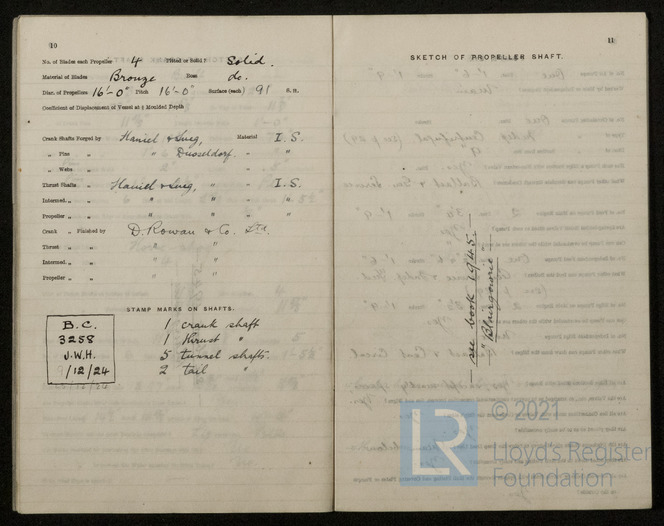 10
No. of Blades each Propeller 4 Fitted or Solid? Solid.
Material of Blades Bronze Boss do.
Diar. of Propellers 16'-0" Pitch 16'-0" Surface (each) 91 S. ft.
Coefficient of Displacement of Vessel at ¾ Moulded Depth
Crank Shafts Forged by Haniel & Lueg, Material I.S.
„ Pins „ " Dusseldorf. „ "
„ Webs „ " „ "
Thrust Shafts „ Haniel & Lueg, „ I.S.
Intermed. „ „ " " „ "
Propeller „ „ " " „ "
Crank „ Finished by D. Rowan & Co. Ltd.
Thrust „ „ " "
Intermed. „ „ " "
Propeller „ „ " "
STAMP MARKS ON SHAFTS.
B.C.
3258
J.W.H.
1/12/24
1 crank shaft
1 thrust "
5 tunnel shafts.
2 tail "
11
SKETCH OF PROPELLER SHAFT.
— see book 1945. —
"Blairgowrie"
LR
© 2021
Lloyd's Register
Foundation